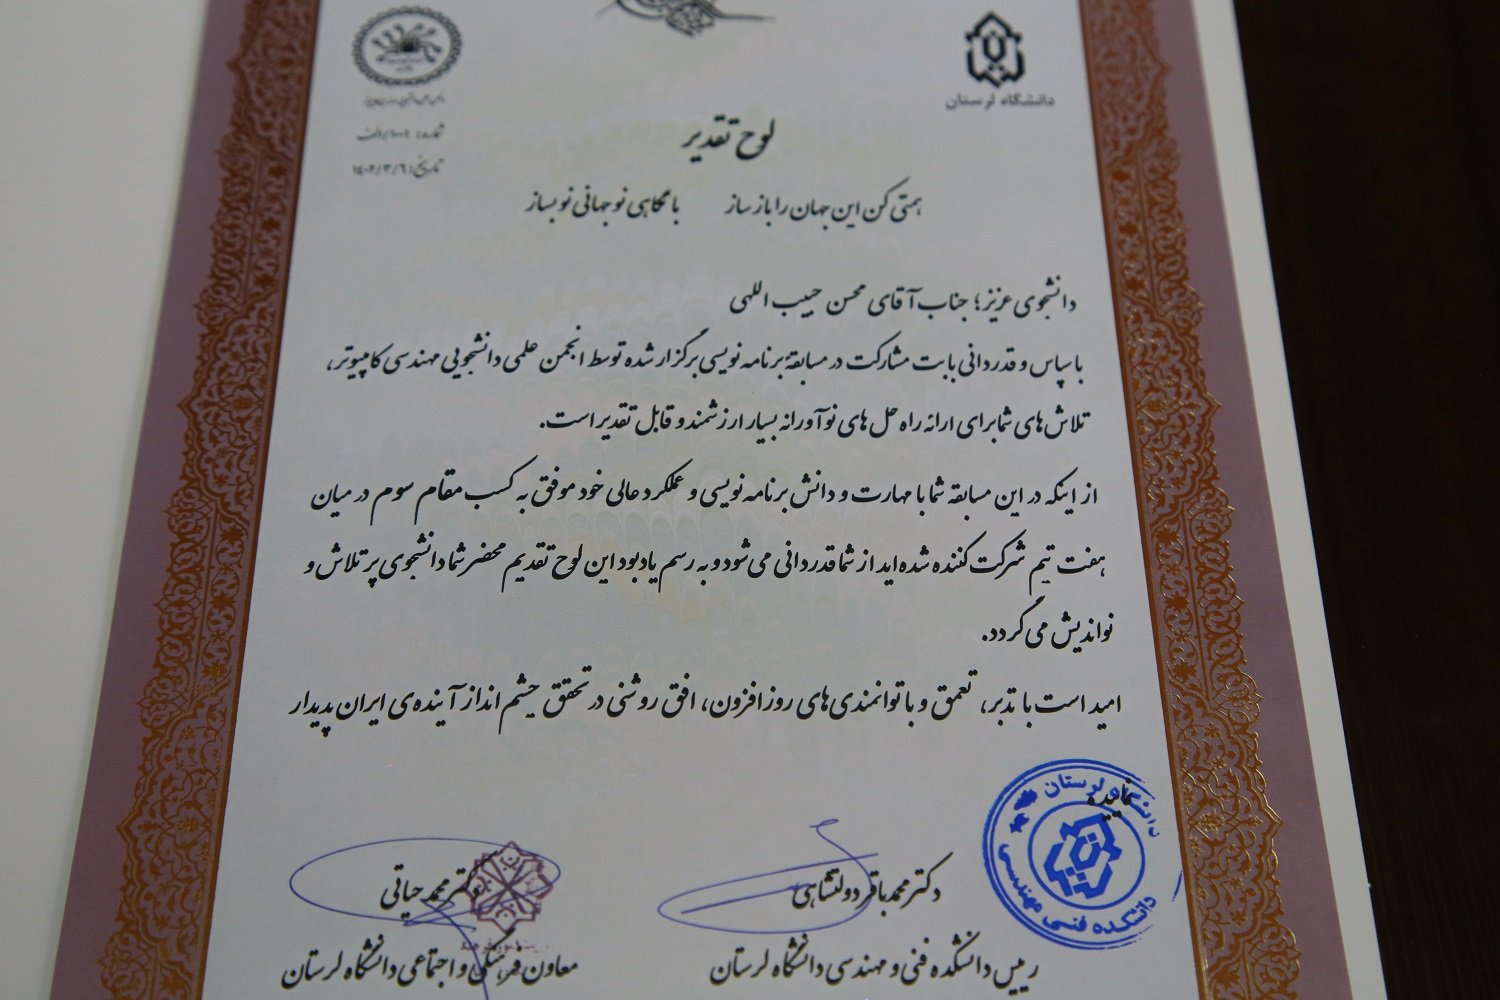 دانشگاه لرستان
شماره: ۱۰۰۱/الف
تاریخ: ۱۴۰۲/۳/۶
لوح تقدیر
همتی کن این جهان را باز ساز با نگاهی نو جهانی نو بساز
دانشجوی عزیز؛ جناب آقای محسن حبیب اللهی
با سپاس و قدردانی بابت مشارکت در مسابقهٔ برنامه نویسی برگزار شده توسط انجمن علمی دانشجویی مهندسی کامپیوتر،
تلاش های شما برای ارائه راه حل های نوآورانه بسیار ارزشمند و قابل تقدیر است.
از اینکه در این مسابقه شما با مهارت و دانش برنامه نویسی و عملکرد عالی خود موفق به کسب مقام سوم در میان
هفت تیم شرکت کننده شده اید از شما قدردانی می شود و به رسم یادبود این لوح تقدیم محضر شما دانشجوی پر تلاش و
نواندیش می گردد.
امید است با تدبر، تعمق و با توانمندی های روز افزون، افق روشنی در تحقق چشم انداز آینده ی ایران پدیدار
نمایید.
دانشگاه لرستان
دانشکده فنی مهندسی
دکتر محمدباقر دولتشاهی
رییس دانشکده فنی و مهندسی دانشگاه لرستان
دکتر محمد حیاتی
معاون فرهنگی و اجتماعی دانشگاه لرستان